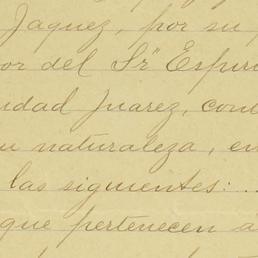 Jaquez, por su
or del Sr Espiri
udad Juarez, con
u naturaleza, en
las siguientes:..
que pertenecen a